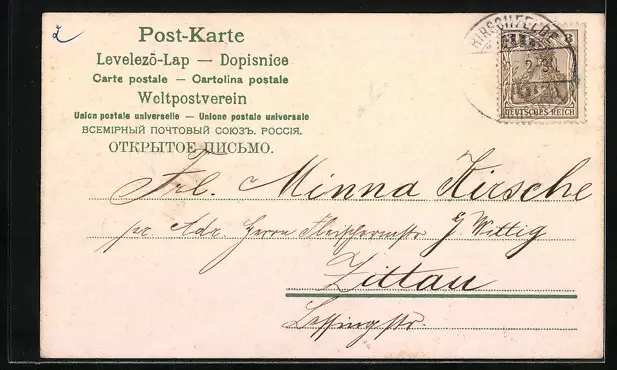 2
Post-Karte
Levelező-Lap — Dopisnice
Carte postale — Cartolina postale
Weltpostverein
Union postale universelle — Unione postale universale
ВСЕМІРНЫЙ ПОЧТОВЫЙ СОЮЗЪ. РОССІЯ.
ОТКРЫТОЕ ПИСЬМО.
HIRSCHFELDE
3
DEUTSCHES REICH
Frl. Minna Kirsche
pr Adr Herrn Fleischermstr G. Wittig
Zittau
Lessingstr.